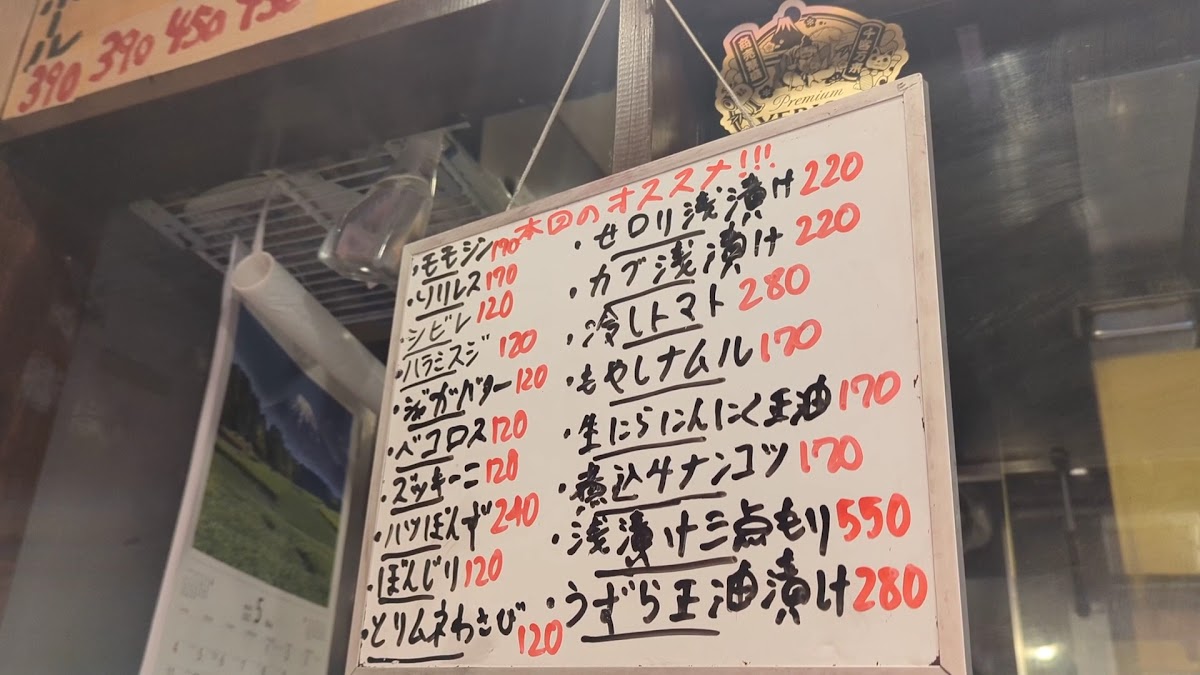 390 390 450 750
Premium
本回のオススメ!!!
・モモシン 170
・リリレス 170
・シビレ 120
・ハラミスジ 120
・ジャガバター 120
・ペコロス 120
・ズッキーニ 120
・ハツぽんず 240
・ぼんじり 120
・とりムネわさび 120
・セロリ浅漬け 220
・カブ浅漬け 220
・冷しトマト 280
・もやしナムル 170
・生にらにんにく王油 170
・煮込牛ナンコツ 170
・浅漬け三点もり 550
・うずら王油漬け 280
5